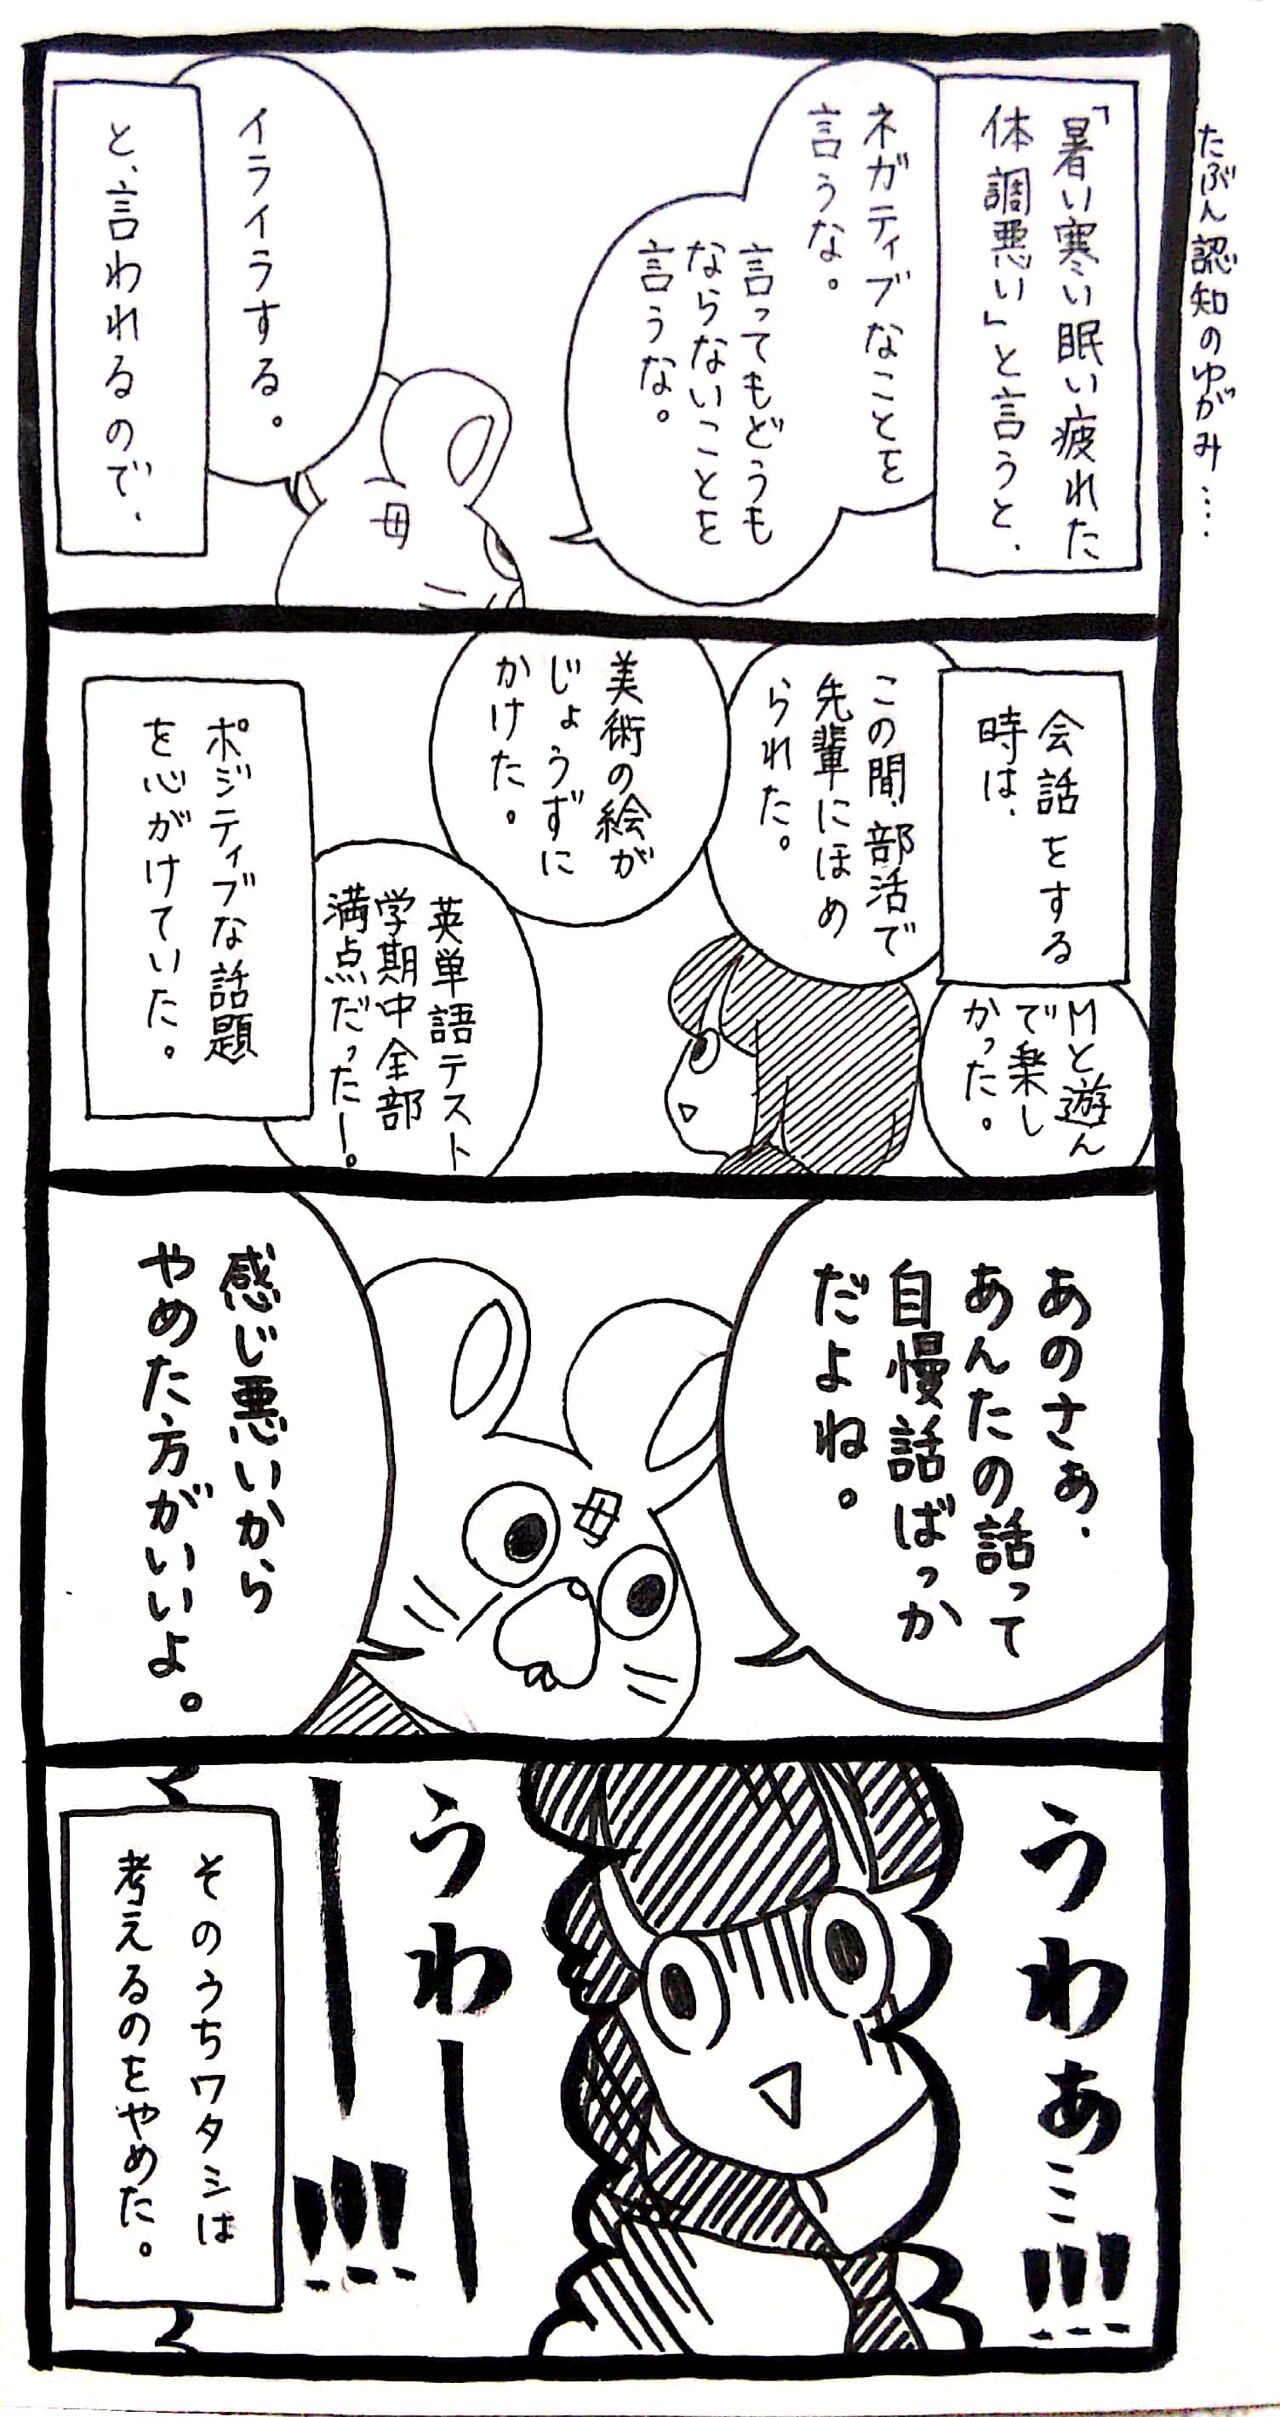 たぶん認知のゆがみ…
「暑い寒い眠い疲れた
体調悪い」と言うと、
ネガティブなことを
言うな。
言ってもどうも
ならないことを
言うな。
イライラする。
と、言われるので、
会話をする
時は、
Mと遊ん
で楽し
かった。
この間、部活で
先輩にほめ
られた。
美術の絵が
じょうずに
かけた。
英単語テスト
学期中全部
満点だったー。
ポジティブな話題
を心がけていた。
母
あのさぁ、
あんたの話って
自慢話ばっか
だよね。
母
感じ悪いから
やめた方がいいよ。
うわぁこ!!!
うわー
ー!!!
そのうちワタシは
考えるのをやめた。